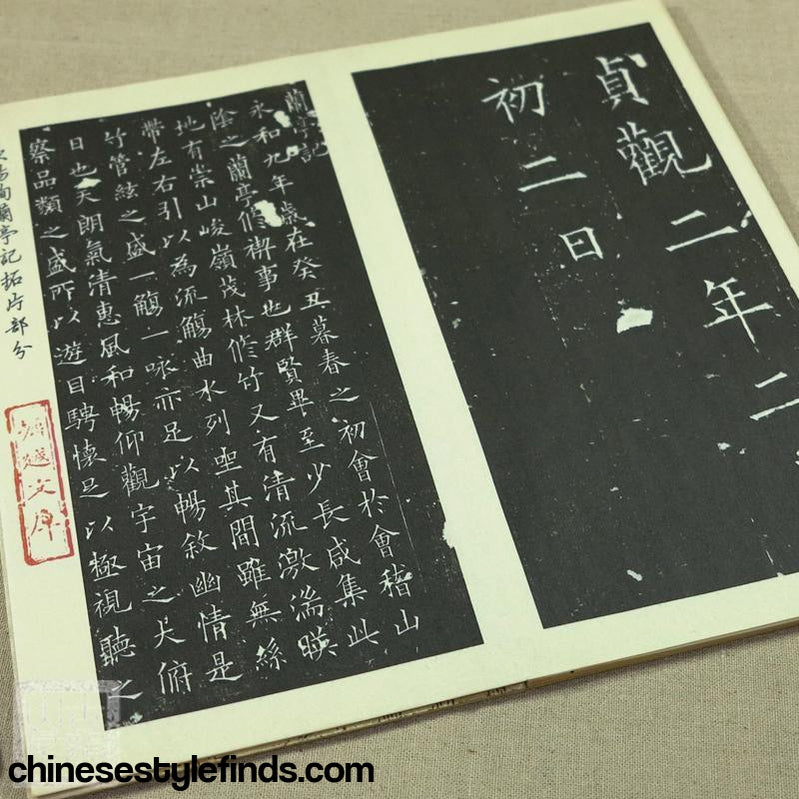 貞觀二年二
初二日
蘭亭記
永和九年歲在癸丑暮春之初會於會稽山
陰之蘭亭修禊事也群賢畢至少長咸集此
地有崇山峻嶺茂林修竹又有清流激湍暎
帶左右引以為流觴曲水列坐其間雖無絲
竹管絃之盛一觴一咏亦足以暢敘幽情是
日也天朗氣清惠風和暢仰觀宇宙之大俯
察品類之盛所以遊目騁懷足以極視聽之
蘭亭記拓片部分
文库
chinesestylefinds.com